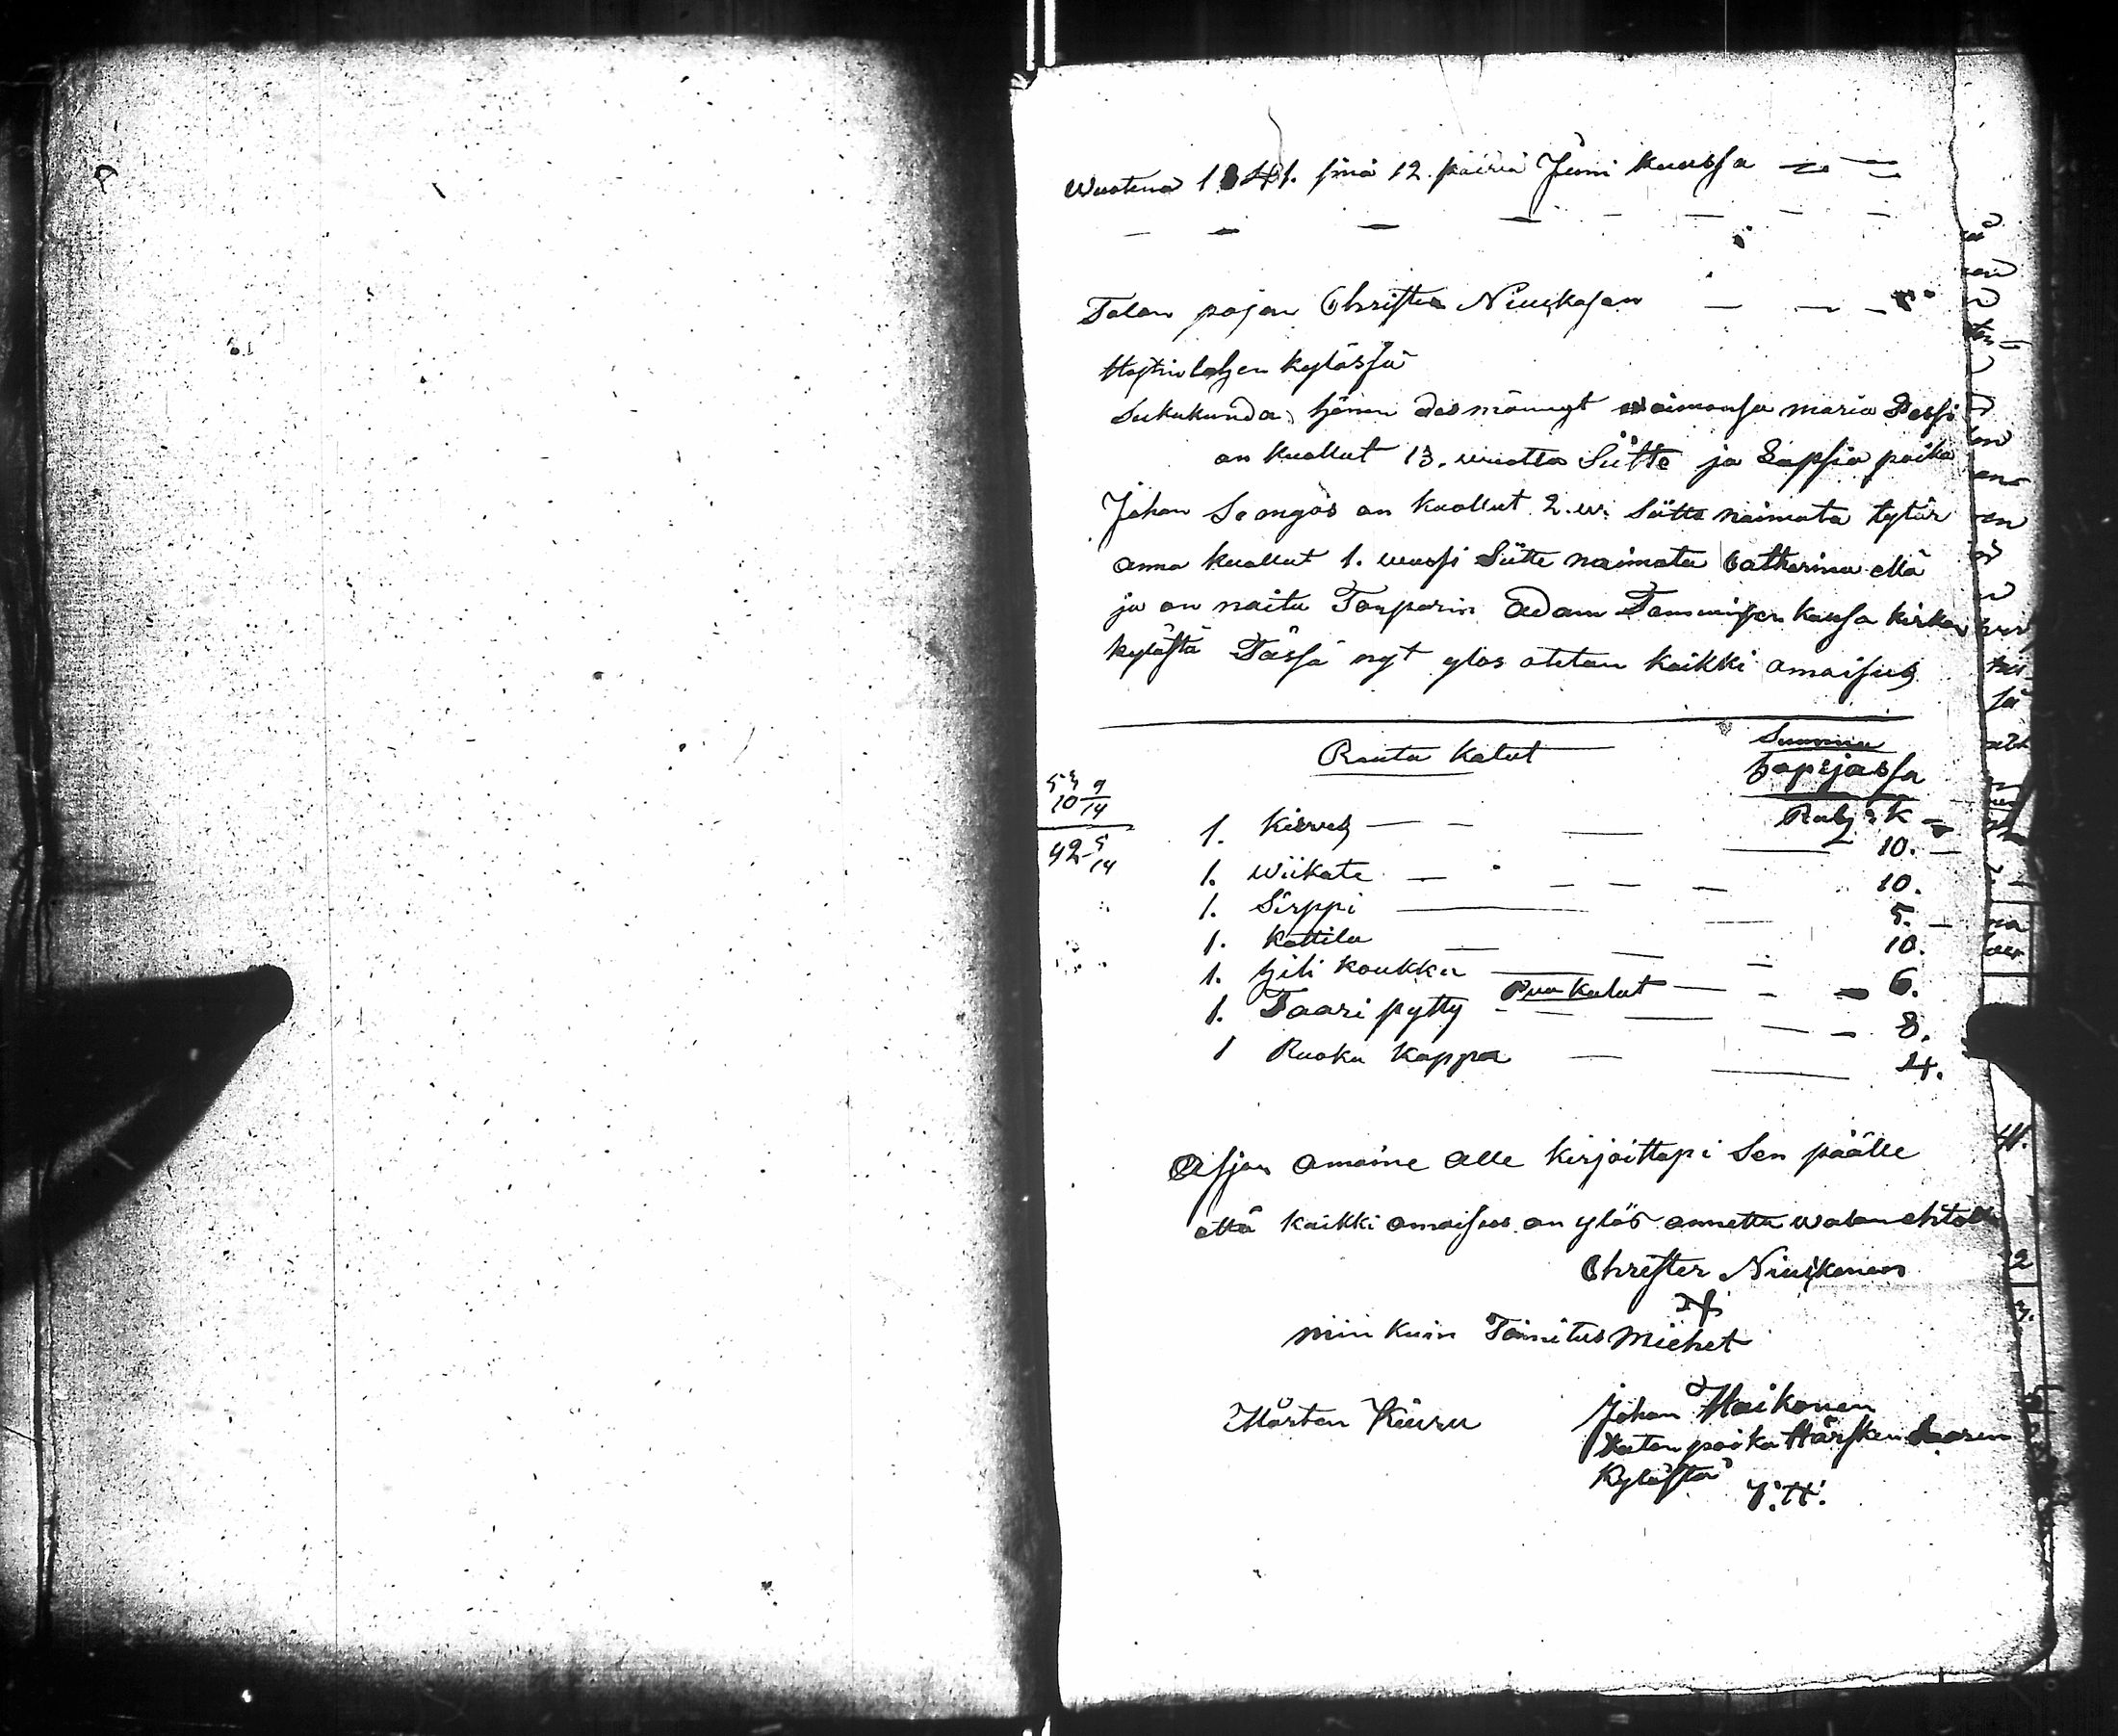 Wuotena 1841. sinä 12. päivä Juni kuussa
Talon pojan Christer Niuskasen
kylässä
Sukukunda, hänen edesmännyt waimonsa maria Pessi
on kuollut 13. wuotta Sitte ja Lapsia poika
Johan on kuollut 2. w. Sitte naimata tytär
anna kuollut 1. wuosi Sitte naimata Catharina elä
ja on naitu Torparin Adam Tommisen kansa kirkon
kylästä Tässä nyt ylös otetan kaikki omaisus
Rauta kalut
Summa
hopejassa
Rubj: k
53 9/14
10
42 5/14
1. kirves 10.
1. wiikate 10.
1. Sirppi 5.
1. kattila 10.
1. hili koukku 6.
Puu kalut
1. Taari pytty 8.
1 Ruoka kappa 4.
Asjan omaine alle kirjoittapi Sen päälle
että kaikki omaisus on ylös annettu walan ehtolla
Christer Niuskanen
niin kuin Toimitus Miehet
Mårten Kiuru
Johan Haikonen
Talon poika Härsken Saaren
Kylästä
J. H.